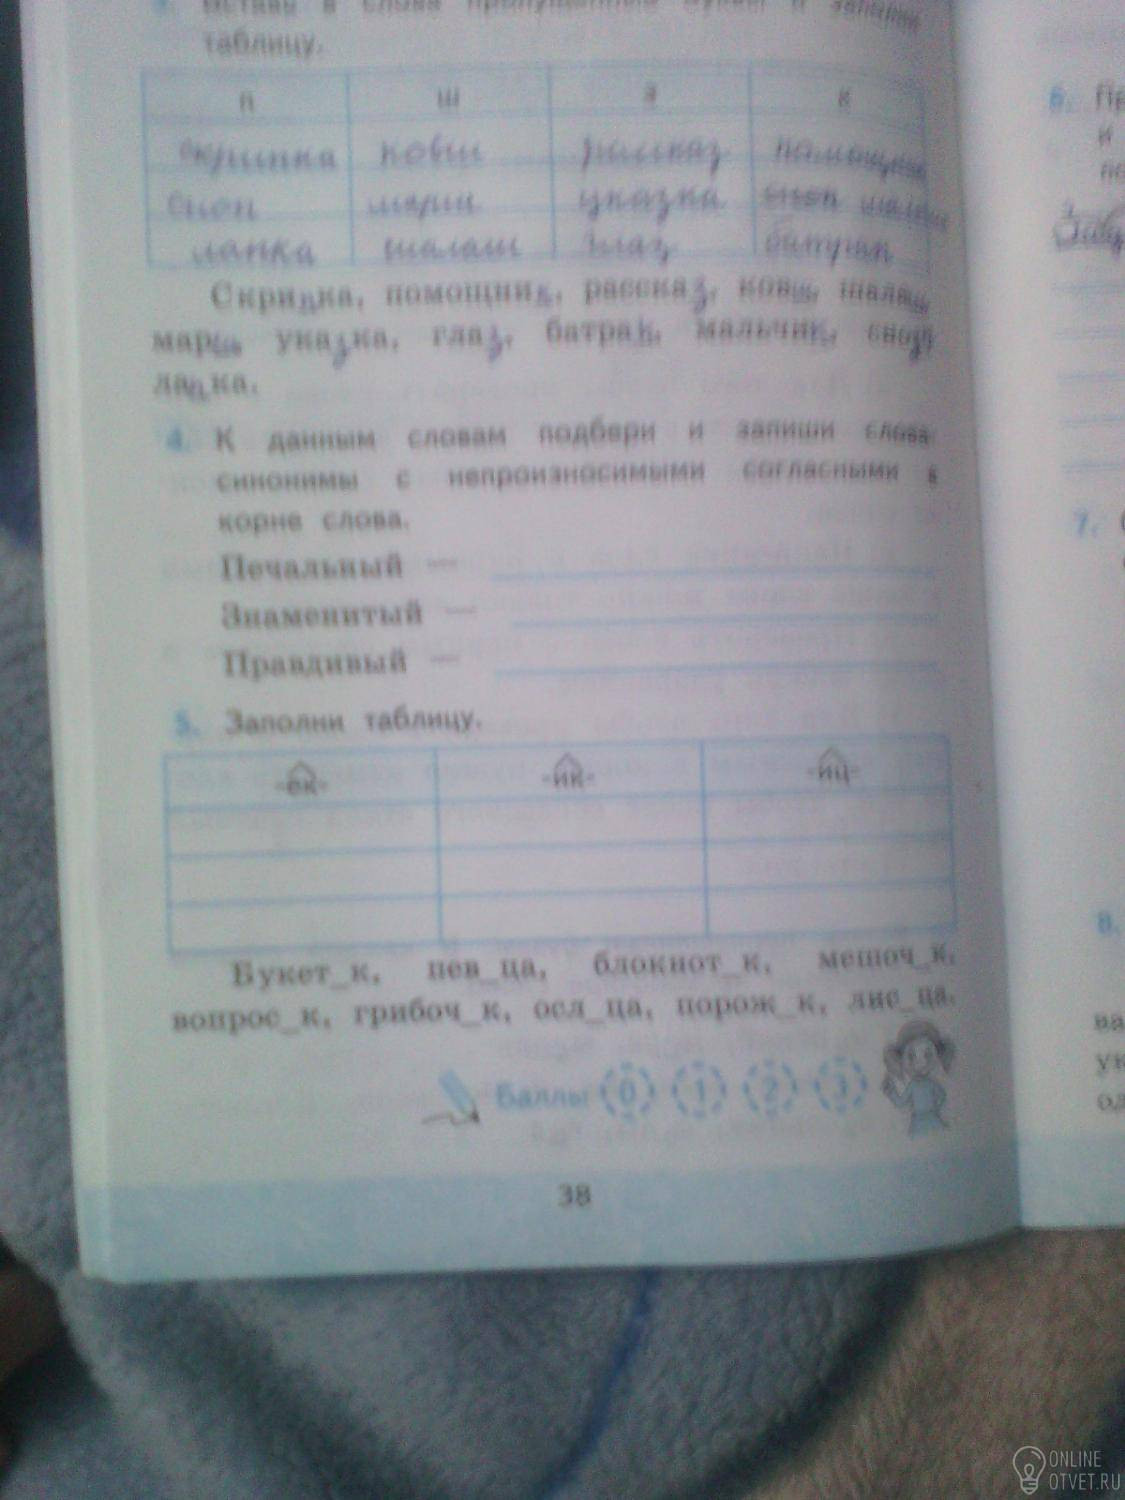 3. Вставь в слова пропущенные буквы и запиши
таблицу.
п ш з к
скрипка ковш рассказ помощник
сноп марш указка сноп
лапка шалаш глаз батрак
Скрипка, помощник, рассказ, ковш, шалаш,
марш указка, глаз, батрак, мальчик,
лапка.
4. К данным словам подбери и запиши слова
синонимы с непроизносимыми согласными в
корне слова.
Печальный —
Знаменитый —
Правдивый —
5. Заполни таблицу.
-ек- -ик- -иц-
Букет_к, пев_ца, блокнот_к, мешоч_к,
вопрос_к, грибоч_к, осл_ца, порож_к, лис_ца.
Баллы 0 1 2 3
38
6. Пр
и
по
7.
8.
ва
ук
од
ONLINE
OTVET.RU